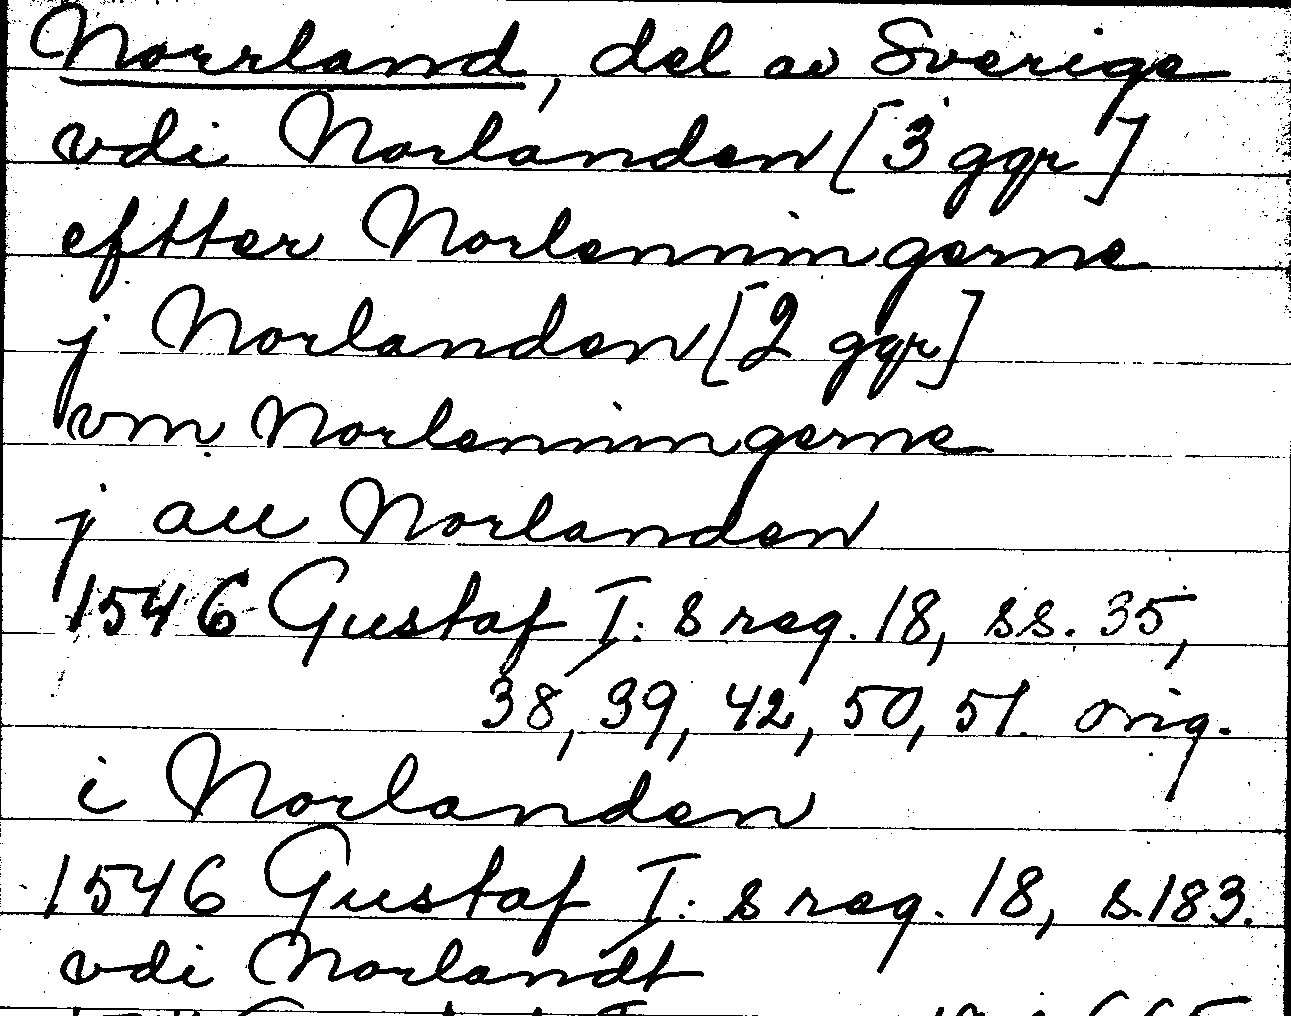 Norrland, del av Sverige
vdi Norlanden [3 ggr]
efter Norlenningerne
j Norlanden [2 ggr]
vm Norlenningerne
j all Norlanden
1546 Gustaf I:s reg. 18, ss. 35,
38, 39, 42, 50, 51. orig.
i Norlanden
1546 Gustaf I:s reg. 18, s. 183.
vdi Norlandt